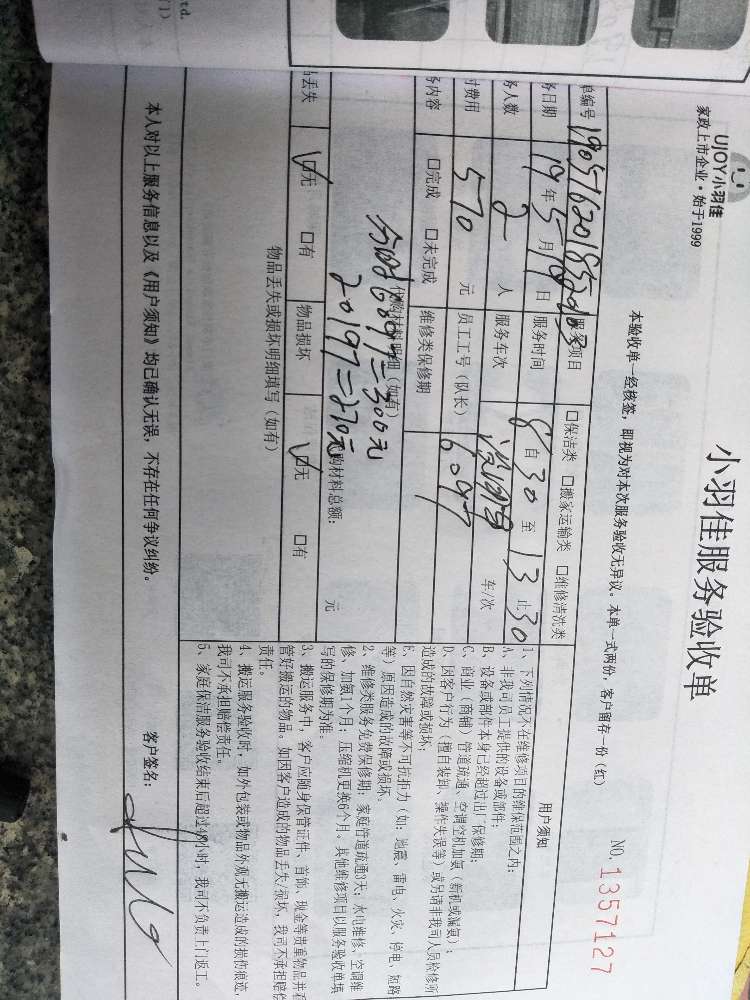 td.
UJOY小羽佳
家政上市企业·始于1999
小羽佳服务验收单
NO. 1357127
本验收单一经核签，即视为对本次服务验收无异议。本单一式两份，客户留存一份（红）
单编号
服务项目 口保洁类 口搬家运输类 口维修清洗类
务日期 19年5月19日 服务时间 8自30至13止30
务人数 2人 服务车次 车/次
时费用 570元 员工工号（队长） 6097
务内容 口完成 口未完成 维修类保修期
代购材料明细（如有）
6097=300元
20197=270元
代购材料总额： 元
品丢失 口无 口有 物品损坏 口无 口有
物品丢失或损坏明细填写（如有）
用户须知
1、下列情况不在维修项目的维保范围之内：
A、非我司员工提供的设备或部件；
B、设备或部件本身已经超过出厂保修期；
C、商业（商铺）管道疏通、空调空机加氨（新机或漏氨）；
D、因客户行为（擅自装卸、操作失误等）或另请非我司人员检修所
造成的故障或损坏；
E、因自然灾害等不可抗拒力（如：地震、雷电、火灾、停电、短路
等）原因造成的故障或损坏。
2、维修类服务免费保修期：家庭管道疏通3天；水电维修、空调维
修、加氨1个月；压缩机更换6个月。其他维修项目以服务验收单填
写的保修期为准。
3、搬运服务中，客户应随身保管证件、首饰、现金等贵重物品并看
管好搬运的物品。如因客户造成的物品丢失/损坏，我司不承担赔偿
责任。
4、搬运服务验收时，如外包装或物品外观无搬运造成的损伤痕迹，
我司不承担赔偿责任。
5、家庭保洁服务验收结束后超过48小时，我司不负责上门返工。
本人对以上服务信息以及《用户须知》均已确认无误，不存在任何争议纠纷。
客户签名：